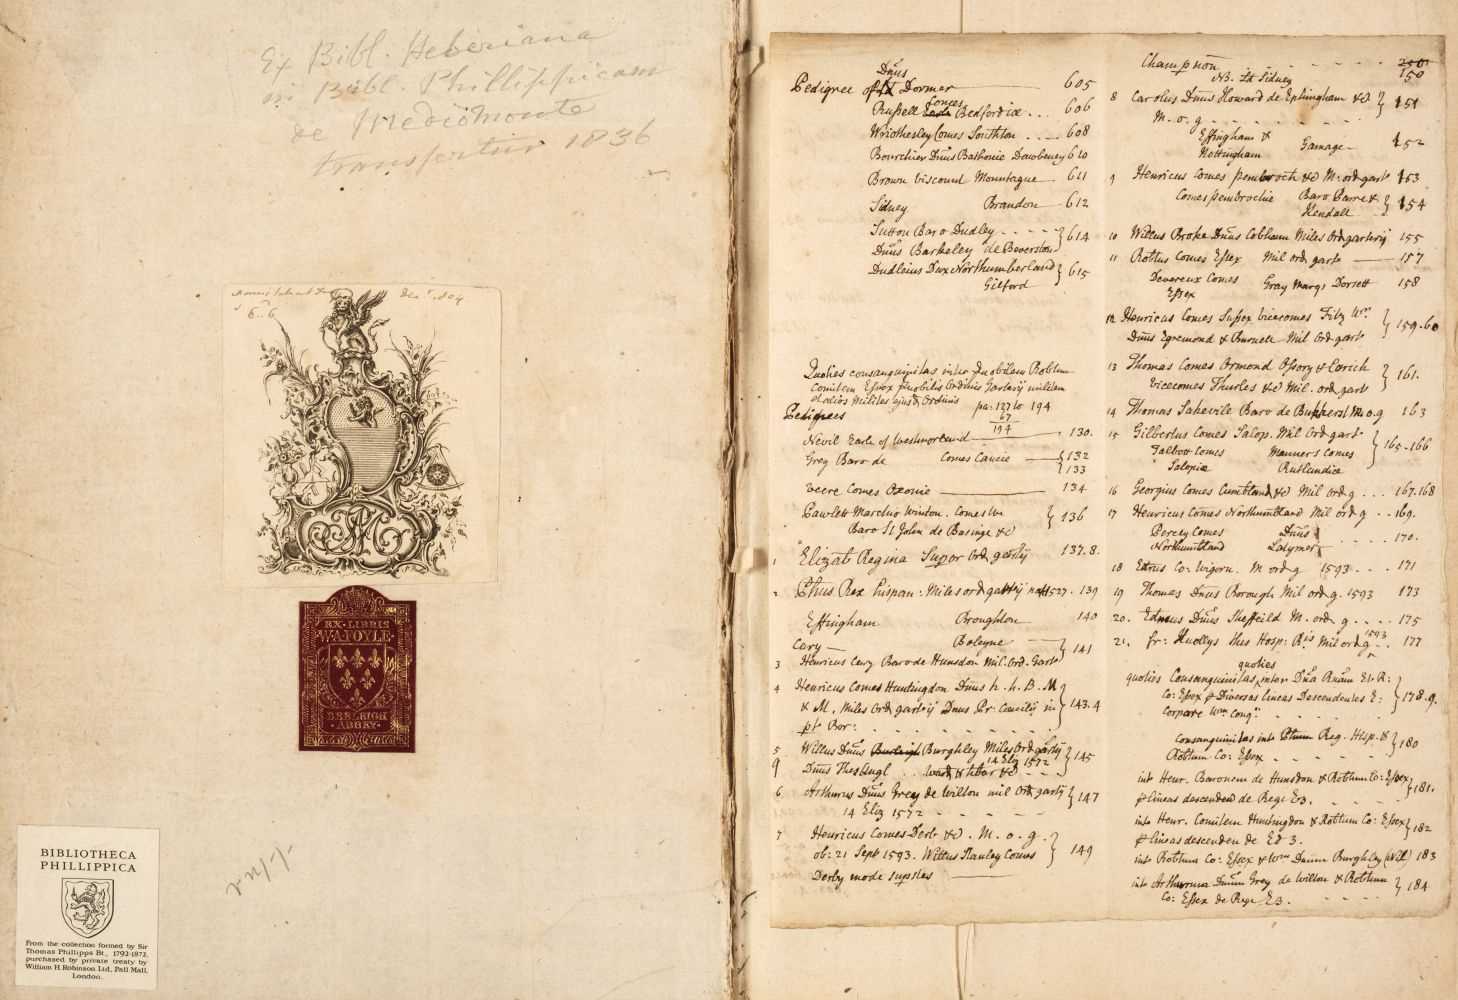 Ex Bibl. Heberiana
in Bibl. Phillippicam
de Mediomonte
transfertur 1836
6..6
EX·LIBRIS
W·A·FOYLE
BEELEIGH
·ABBEY·
BIBLIOTHECA
PHILLIPPICA
From the collection formed by Sir
Thomas Phillipps Bt., 1792-1872,
purchased by private treaty by
William H. Robinson Ltd., Pall Mall,
London.
Dnus
Pedigree of Ld Dormer 605
Comes
Russell Earle Bedfordiæ ... 606
Wriothesley Comes Southton .... 608
Bourchier Dnus Bathonie Dawbeney 610
Brown Viscount Mountague 611
Sidney Brandon 612
Sutton Baro Dudley .... } 614
Dnus Barkeley de Beverston
Dudleius Dux Northumberland } 615
Gilford
Quoties consanguinitas inter Nobilem Robtum
Comitem Essex prenobilis Ordinis Garterij militem
et alios Milites ejusd. Ordinis pa: 127 to 194
67
194
Pedigrees
Nevil Earle of Westmorland 130.
Grey Baro de Comes Cancie { 132
{ 133
Veere Comes Oxonie 134
Pawlett Marchio Winton. Comes W
Baro St John de Basinge &c } 136
1 Elizab Regina Supor Ord. gartij 137.8.
2 Phus Rex hispan: Miles ord gartij 1527. 139
Effingham Broughton 140
Cary Boleyne } 141
3 Henricus Cary Baro de Hunsdon Mil. Ord. Gart
4 Henricus Comes Huntingdon Dnus h. h. B. M
& M. Miles Ord gartij Dnus Pr: Concilij in } 143.4
pt Bor: . . . .
5 Willus Dnus Burleigh Burghley Miles Ord gartij } 145
14 Eliz 1572
9 Dnus Thes Angl .. Ward &c
6 Arthurus Dnus Grey de Wilton mil Ord gartij } 147
14 Eliz 1572 - - - -
7 Henricus Comes Derb &c. M. o. g.
ob: 21 Sept 1593. Willus Stanley Comes } 149
Derby modo supstes
Champnon 150
NB. Ld Sidney
8 Carolus Dnus Howard de Effingham &c } 151
M. o. g
Effingham & Gamage 152
Nottingham
9 Henricus Comes pembroch &c M: ord gart 153
Comes pembrochie Baro Parre & } 154
Kendall
10 Willus Broke Dnus Cobham Miles Ord garterij 155
11 Robtus Comes Essex Mil ord. gart 157
Devereux Comes Gray Marqs Dorsett 158
Essex
12 Henricus Comes Sussex Vicecomes Fitz Wr } 159.60
Dnus Egremond & Burnell Mil ord gart
13 Thomas Comes Ormond Ossory & Carick } 161.
Vicecomes Thurles &c Mil. ord gart
14 Thomas Sakevile Baro de Buckherst M. o. g 163
15 Gilbertus Comes Salop. Mil Ord gart
Talbott Comes Manners Comes } 165-166
Salopiæ Rutlandiæ
16 Georgius Comes Cumbland &c Mil ord. g ... 167.168
17 Henricus Comes Northumbland Mil ord g .. 169.
Percey Comes Dnus .... 170.
Northumbland Latymer
18 Edrus Co: Wigorn. M ord. g 1593 ... 171
19 Thomas Dnus Borough Mil ord. g. 1593 173
20. Edmus Dnus Sheffeild M. ord g .... 175
21. fr: Knollys Thes Hosp: Ris Mil ord g 1593 .. 177
quoties
quoties Consanguinitas inter Dna Rnam El: R:
Co: Essex p Diversas lineas Descendentes E: } 178.9.
Conquare Wm Conqr.
Consanguinitas inte Phum Reg. Hisp. & } 180
Robtum Co: Essex
int Henr. Baronem de Hunsdon & Robtum Co: Essex } 181.
p lineas descenden de Rege E3.
inte Henr. Comitem Huntingdon & Robtum Co: Essex } 182
p lineas descenden de Ed 3.
int Robtum Co: Essex & Wm Dnum Burghley (Cecil) 183
inte Arthurum Dnum Grey de Wilton & Robtum } 184
Co: Essex de Rege E3.